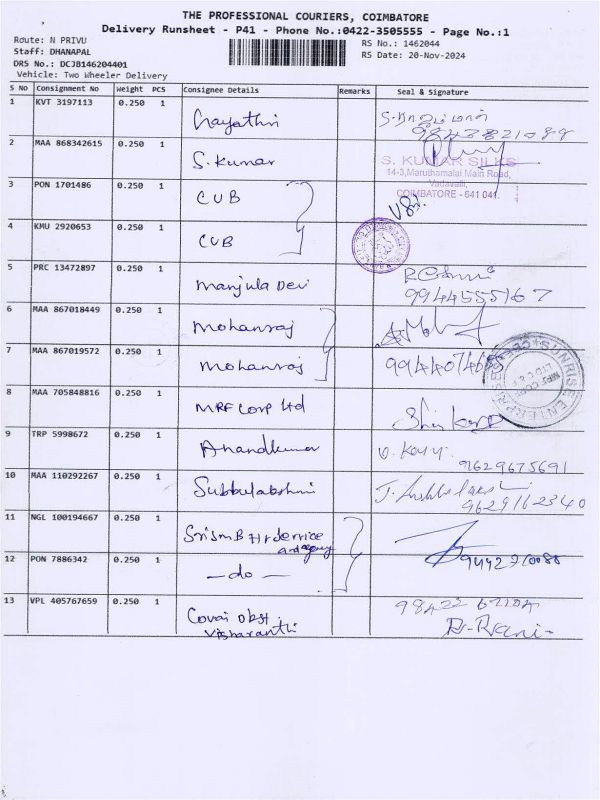 THE PROFESSIONAL COURIERS, COIMBATORE
Delivery Runsheet - P41 - Phone No.:0422-3505555 - Page No.:1
Route: N PRIVU
RS No.: 1462044
Staff: DHANAPAL
RS Date: 20-Nov-2024
DRS No.: DCJB146204401
Vehicle: Two Wheeler Delivery
S No Consignment No Weight PCS Consignee Details Remarks Seal & Signature
1 KVT 3197113 0.250 1 Gayathri
2 MAA 868342615 0.250 1 S. Kumar
S. KUMAR SILKS
14-3,Maruthamalai Main Road,
Vadavalli,
COIMBATORE - 641 041.
3 PON 1701486 0.250 1 CUB
4 KMU 2920653 0.250 1 CUB
5 PRC 13472897 0.250 1 Manjula Devi
9944555167
6 MAA 867018449 0.250 1 Mohanraj
7 MAA 867019572 0.250 1 Mohanraj
8 MAA 705848816 0.250 1 MRF Corp ltd
SUNRISE ENTERPRISES
9 TRP 5998672 0.250 1 Anandkumar
9629675691
10 MAA 110292267 0.250 1 Subbulakshmi
9629162340
11 NGL 100194667 0.250 1
12 PON 7886342 0.250 1 - do -
13 VPL 405767659 0.250 1 Covai obst